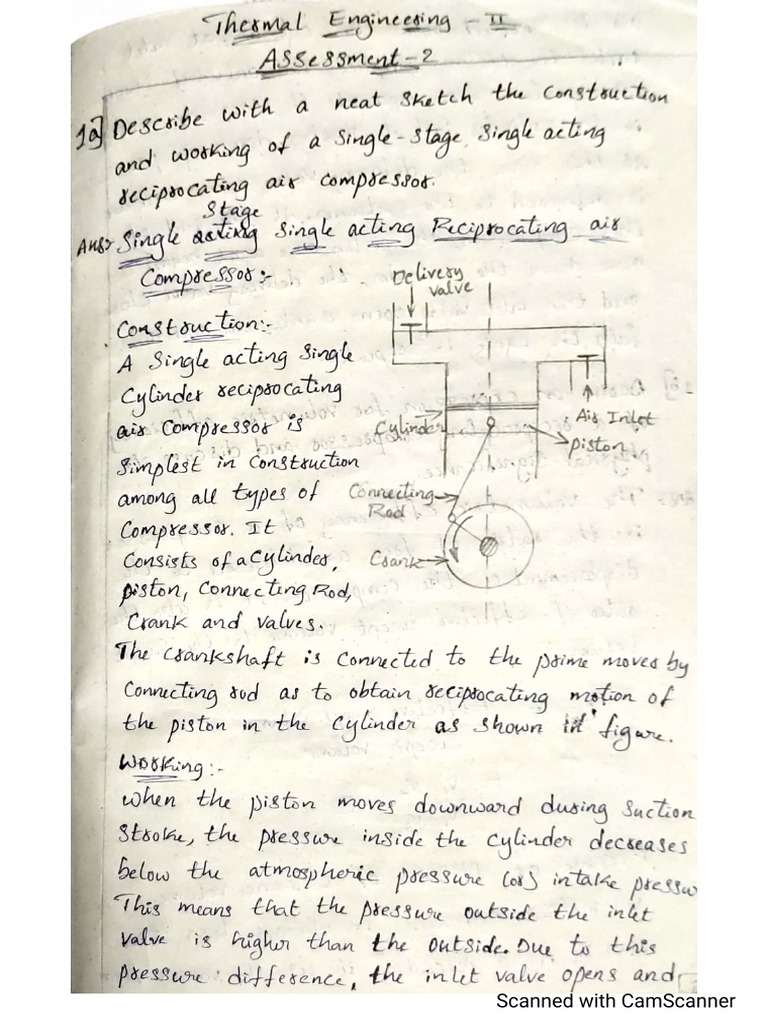 Thermal Engineering - II
Assessment - 2
1a] Describe with a neat sketch the construction
and working of a single-stage, single acting
reciprocating air compressor.
Stage
Ans:- Single acting Single acting Reciprocating air
Compressor:-
Delivery
valve
Construction:-
A Single acting single
Cylinder reciprocating
air compressor is
simplest in construction
among all types of
Compressor. It
Consists of a cylinder,
piston, connecting Rod,
Crank and valves.
Cylinder
Air Inlet
piston
Connecting
Rod
Crank
The crankshaft is connected to the prime mover by
connecting rod as to obtain reciprocating motion of
the piston in the cylinder as shown in figure.
Working:-
When the piston moves downward during suction
stroke, the pressure inside the cylinder decreases
below the atmospheric pressure (or) intake pressu
This means that the pressure outside the inlet
valve is higher than the outside. Due to this
pressure difference, the inlet valve opens and
Scanned with CamScanner